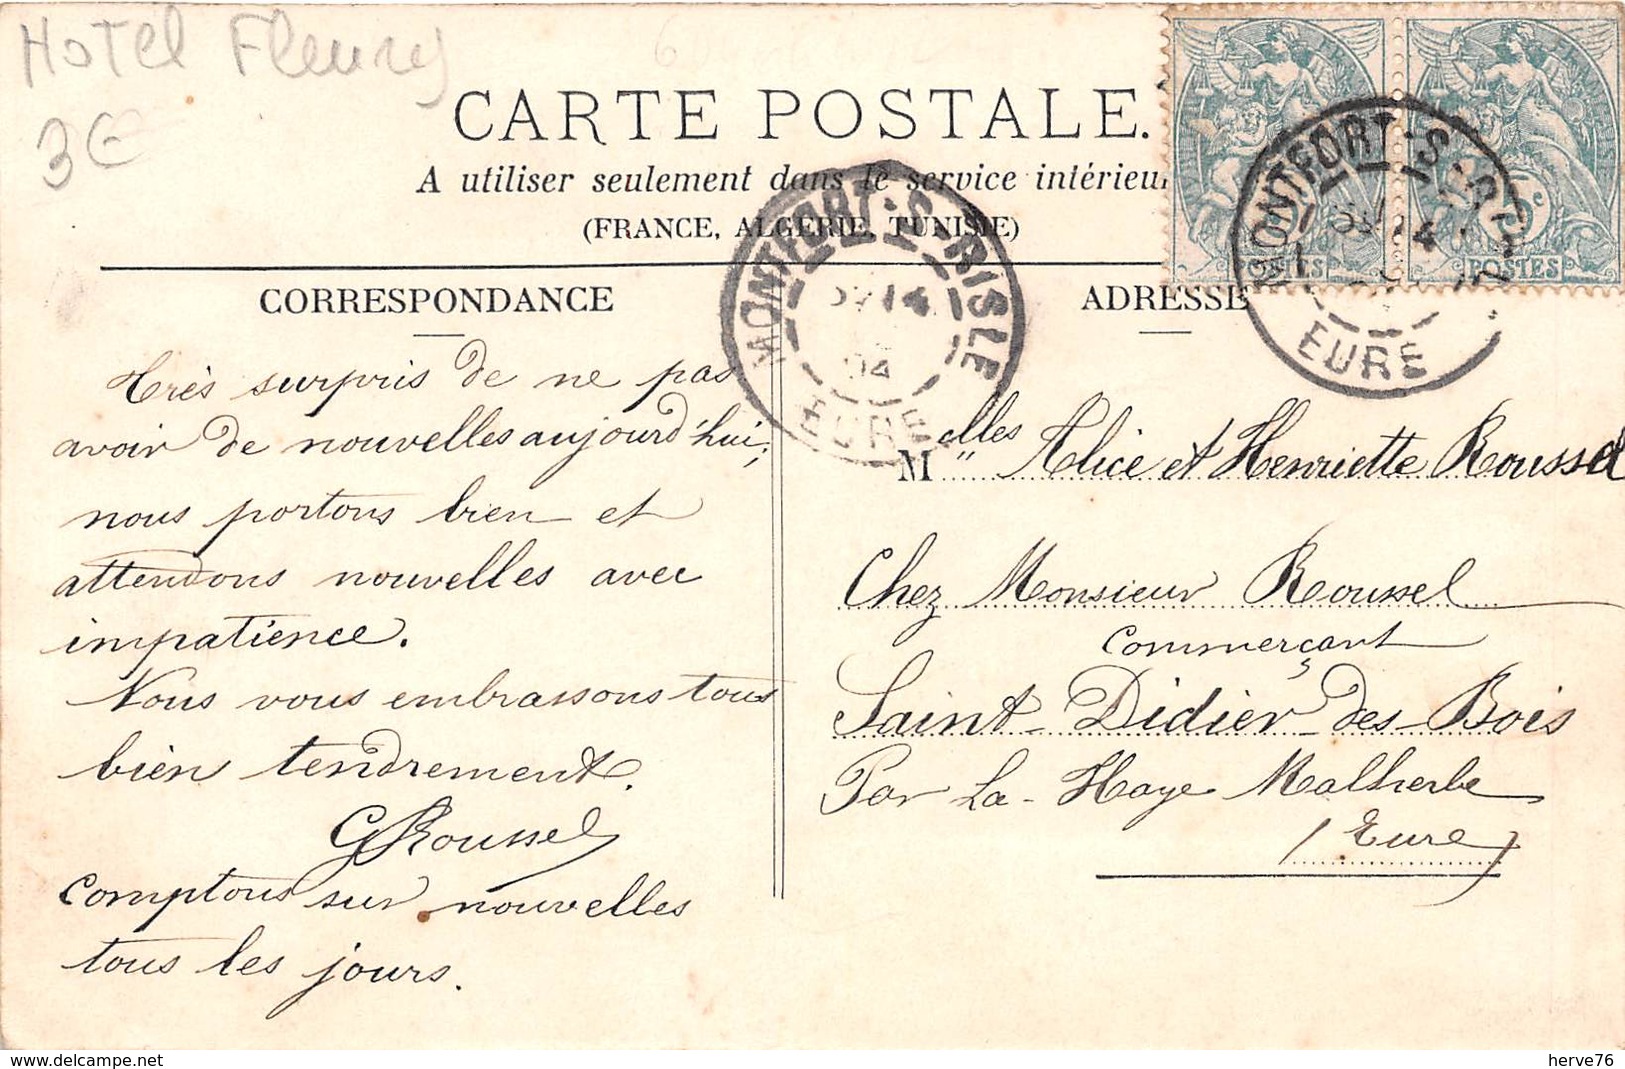 Hotel Fleury
3€
CARTE POSTALE.
A utiliser seulement dans le service intérieur
(FRANCE, ALGÉRIE, TUNISIE)
CORRESPONDANCE
ADRESSE
MONTFORT-S-RISLE
04
EURE
MONTFORT-S-RISLE
EURE
POSTES
POSTES
Très surpris de ne pas
avoir de nouvelles aujourd'hui,
nous portons bien et
attendons nouvelles avec
impatience.
Nous vous embrassons tous
bien tendrement.
G Roussel
Comptons sur nouvelles
tous les jours.
M elles Alice et Henriette Roussel
Chez Monsieur Roussel
Commerçant
Saint-Didier-des-Bois
Par La-Haye Malherbe
(Eure)
delcampe.net
herve76